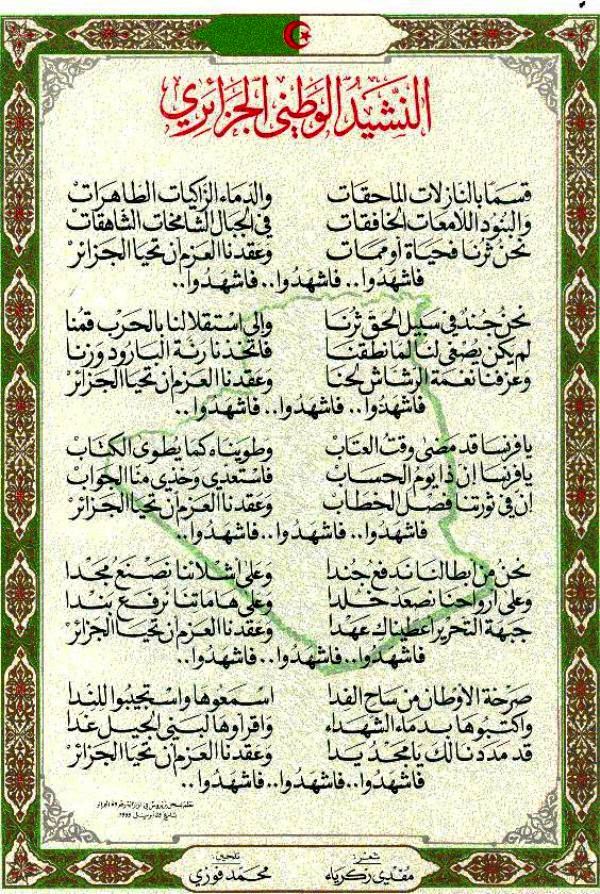 النَّشِيدُ الوَطَنِي الجَزَائِرِي
قسمًا بالنازلات الماحقات والدماء الزاكيات الطاهرات
والبنود اللامعات الخافقات في الجبال الشامخات الشاهقات
نحن ثرنا فحياة أو ممات وعقدنا العزم أن تحيا الجزائر
فاشهدوا.. فاشهدوا.. فاشهدوا..
نحن جند في سبيل الحق ثرنا وإلى استقلالنا بالحرب قمنا
لم يكن يصغى لنا لما نطقنا فاتخذنا رنة البارود وزنا
وعزفنا نغمة الرشاش لحنا وعقدنا العزم أن تحيا الجزائر
فاشهدوا.. فاشهدوا.. فاشهدوا..
يا فرنسا قد مضى وقت العتاب وطويناه كما يطوى الكتاب
يا فرنسا إن ذا يوم الحساب فاستعدي وخذي منا الجواب
إن في ثورتنا فصل الخطاب وعقدنا العزم أن تحيا الجزائر
فاشهدوا.. فاشهدوا.. فاشهدوا..
نحن من أبطالنا ندفع جندا وعلى أشلائنا نصنع مجدا
وعلى أرواحنا نصعد خلدا وعلى هاماتنا نرفع بندا
جبهة التحرير أعطيناك عهدا وعقدنا العزم أن تحيا الجزائر
فاشهدوا.. فاشهدوا.. فاشهدوا..
صرخة الأوطان من ساح الفدا اسمعوها واستجيبوا للندا
واكتبوها بدماء الشهداء واقرأوها لبني الجيل غدا
قد مددنا لك يا مجد يدا وعقدنا العزم أن تحيا الجزائر
فاشهدوا.. فاشهدوا.. فاشهدوا..
شعر: تلحين:
مفدي زكرياء محمد فوزي